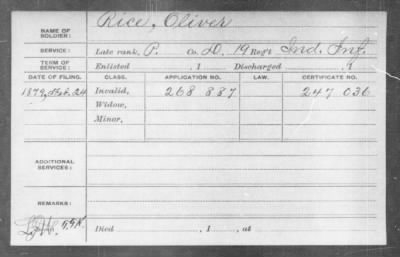 NAME OF SOLDIER: Rice, Oliver
SERVICE: Late rank, P. Co. D. 19 Reg't Ind. Inf.
TERM OF SERVICE: Enlisted , 1 Discharged , 1
DATE OF FILING. CLASS. APPLICATION NO. LAW. CERTIFICATE NO.
1879, Feb. 24 Invalid, 268 887 247 036
Widow,
Minor,
ADDITIONAL SERVICES:
REMARKS:
Died , 1 , at